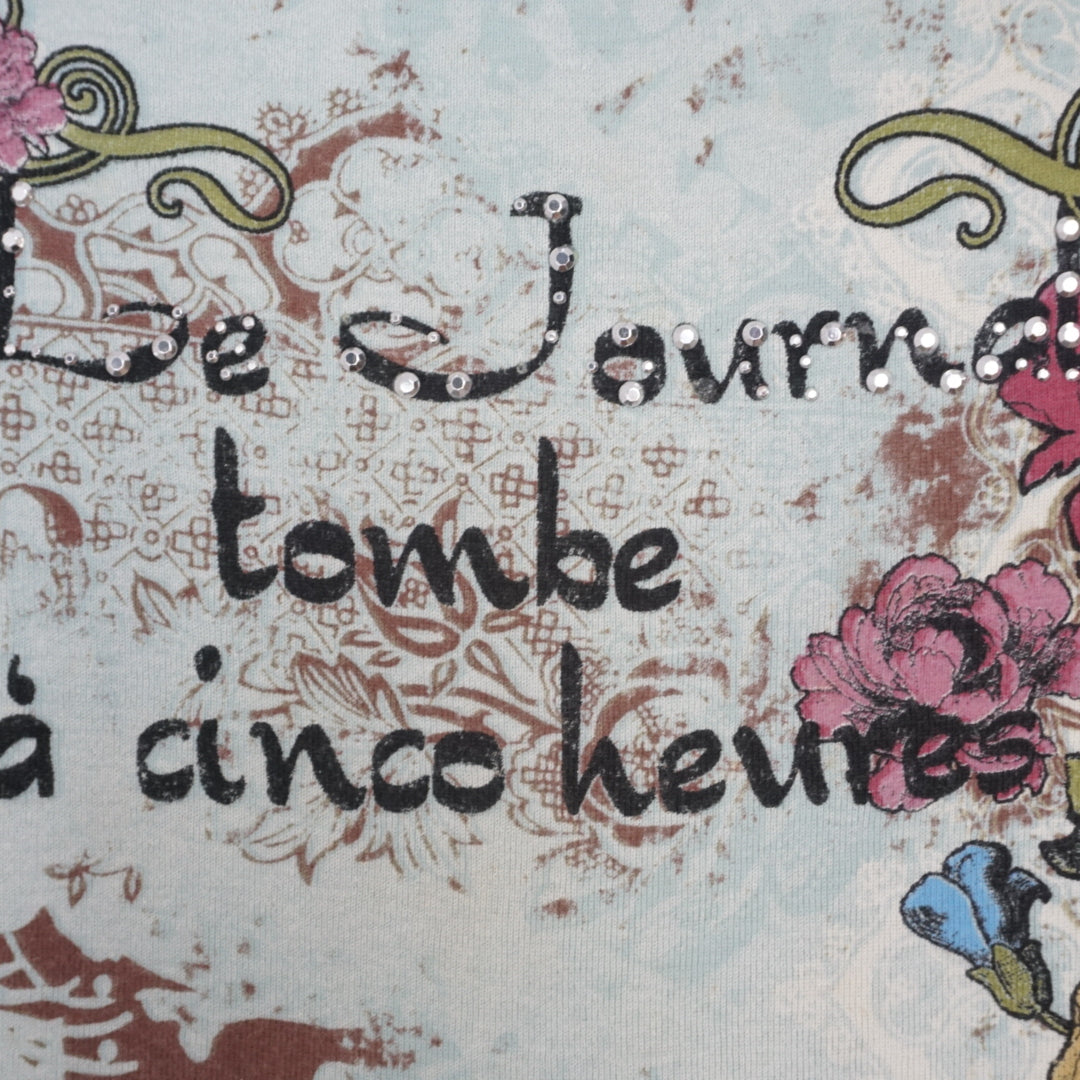 Le Journal
tombe
à cinco heures